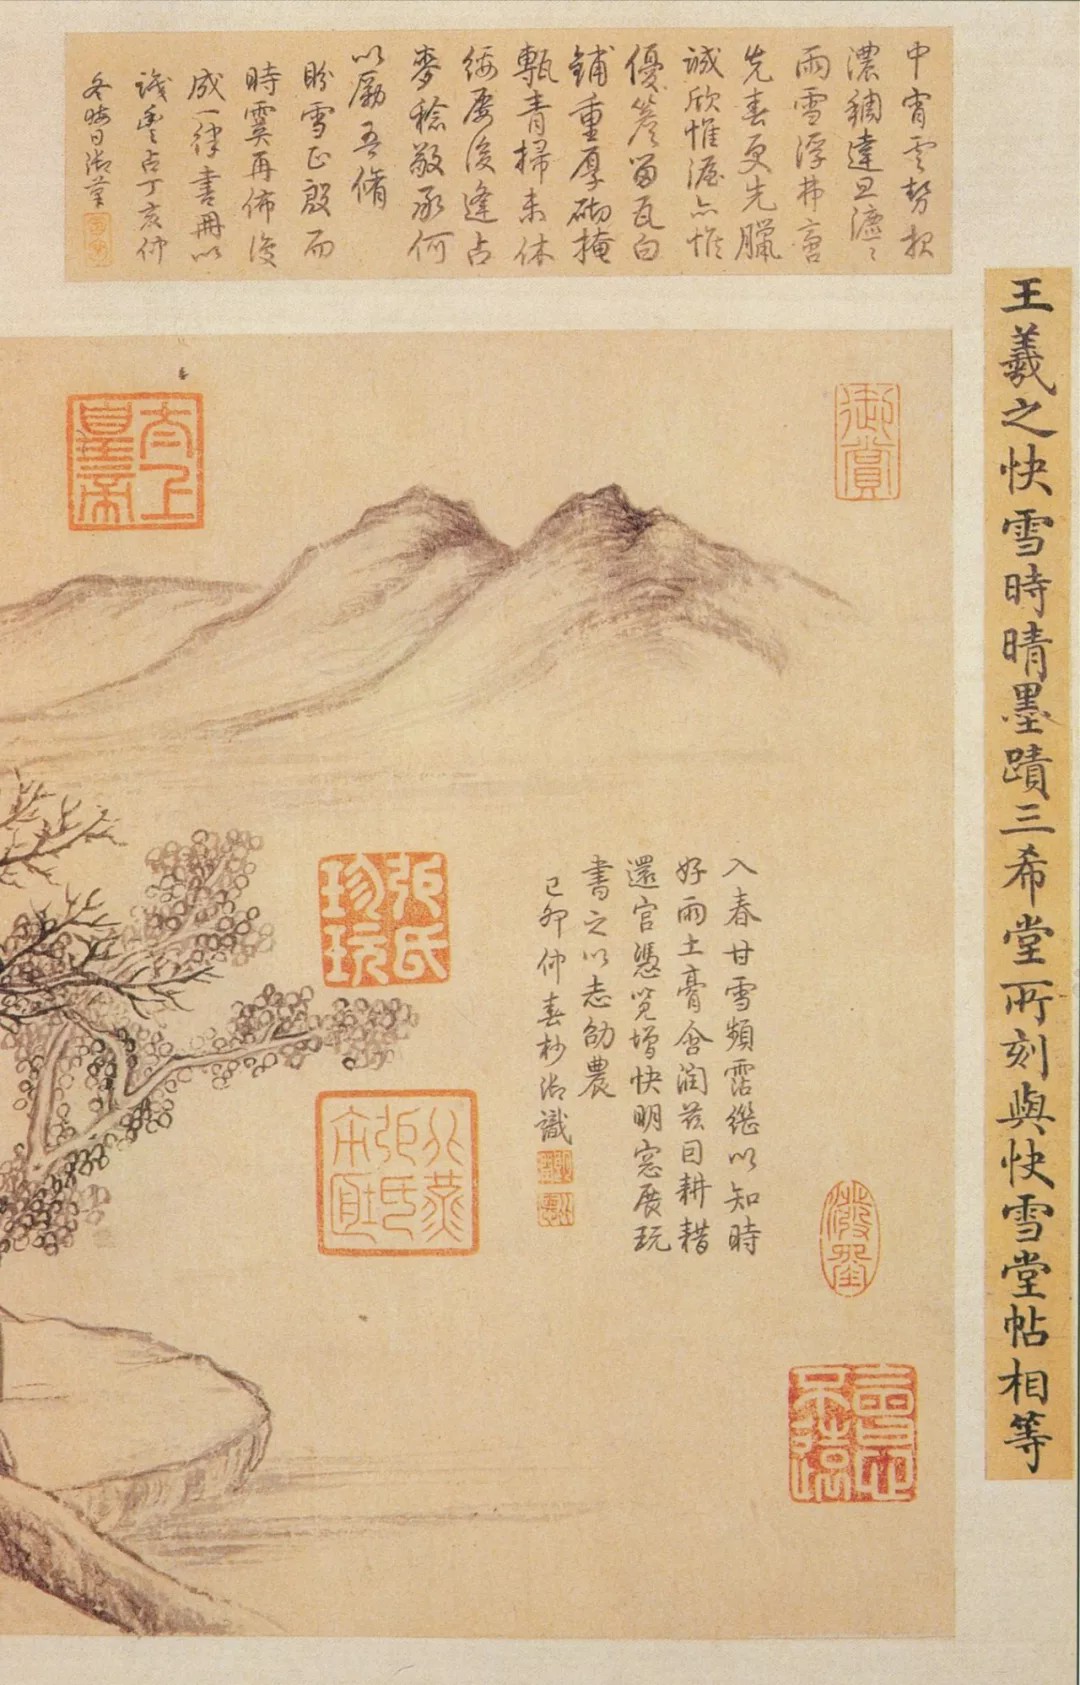 王羲之快雪時晴墨蹟三希堂所刻與快雪堂帖相等
中宵雲勢報
濃稠達旦瀌〻
雨雪浮弗啻
先春更先臘
誠欣惟渥亦惟
優簷留瓦白
鋪重厚砌掩
甎青掃未休
綏屢後逢占
麥稔敬承何
以勵吾脩
盼雪正殷而
時霙再佈復
成一律書冊以
識豐占丁亥仲
冬晦日御筆
御賞
太上皇帝
入春甘雪頻霑繼以知時
好雨土膏含潤茲日耕耤
還宮憑覽增快明窓展玩
書之以志劭農
己卯仲春杪御識
張氏珍玩
會心不遠